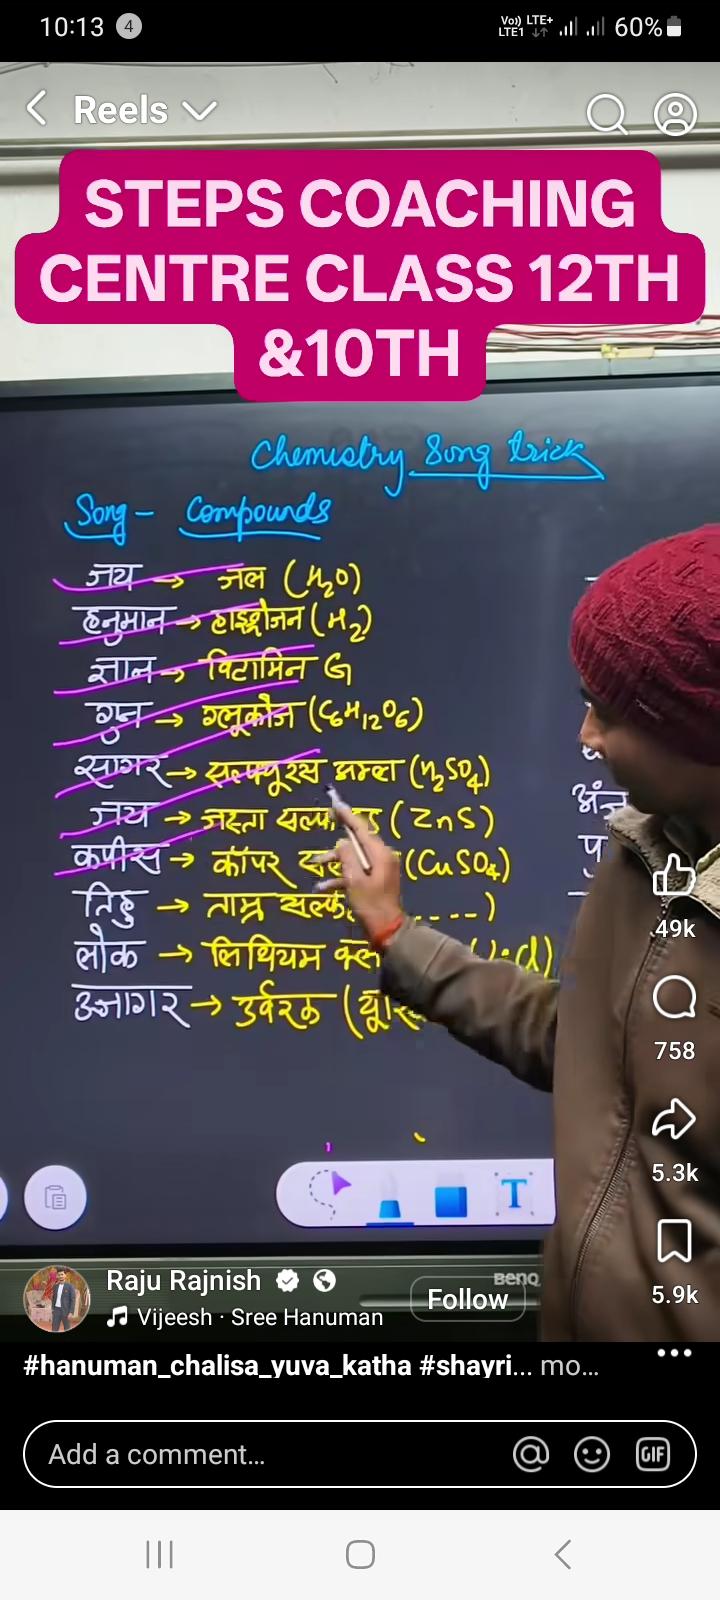 10:13 4 Vo)) LTE+ LTE1 60%
Reels
STEPS COACHING
CENTRE CLASS 12TH
&10TH
Chemistry Song trick
Song - Compounds
जय → जल (H2O)
हनुमान → हाइड्रोजन (H2)
ज्ञान → विटामिन G
गुन → ग्लूकोज (C6H12O6)
सागर → सल्फ्यूरस अम्ल (H2SO4)
जय → जस्ता (ZnS)
कपीस → कॉपर (CuSO4)
तिहु → ताम्र ----)
लोक → लिथियम
उजागर → उर्वरक
49K
758
5.3K
5.9K
BenQ
Raju Rajnish
Follow
Vijeesh · Sree Hanuman
#hanuman_chalisa_yuva_katha #shayri... mo...
Add a comment...
GIF